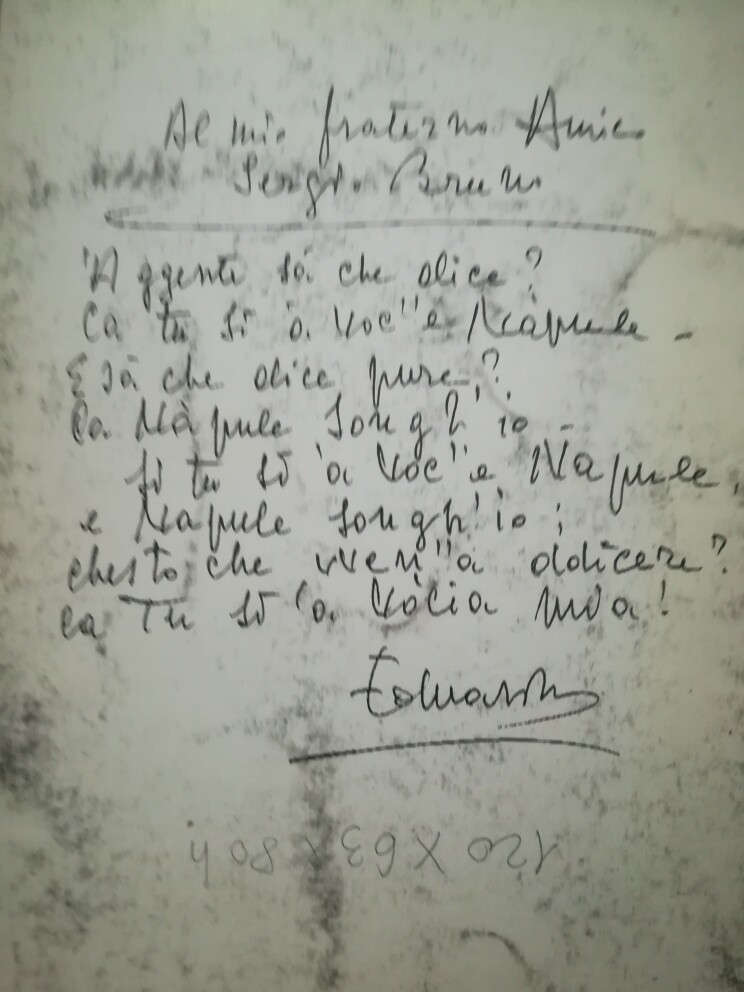 Al mio fraterno Amico
Sergio Bruni
'A ggente sà che dice?
Ca tu si 'a voc''e Nàpule -
E sà che dice pure?
Ca Nàpule songh'io -
Si tu si 'a voc''e Napule,
e Napule songh'io;
chesto che vven''a ddicere?
ca Tu si 'a Vócia mia!
Eduardo
120 X 63 X 80 h